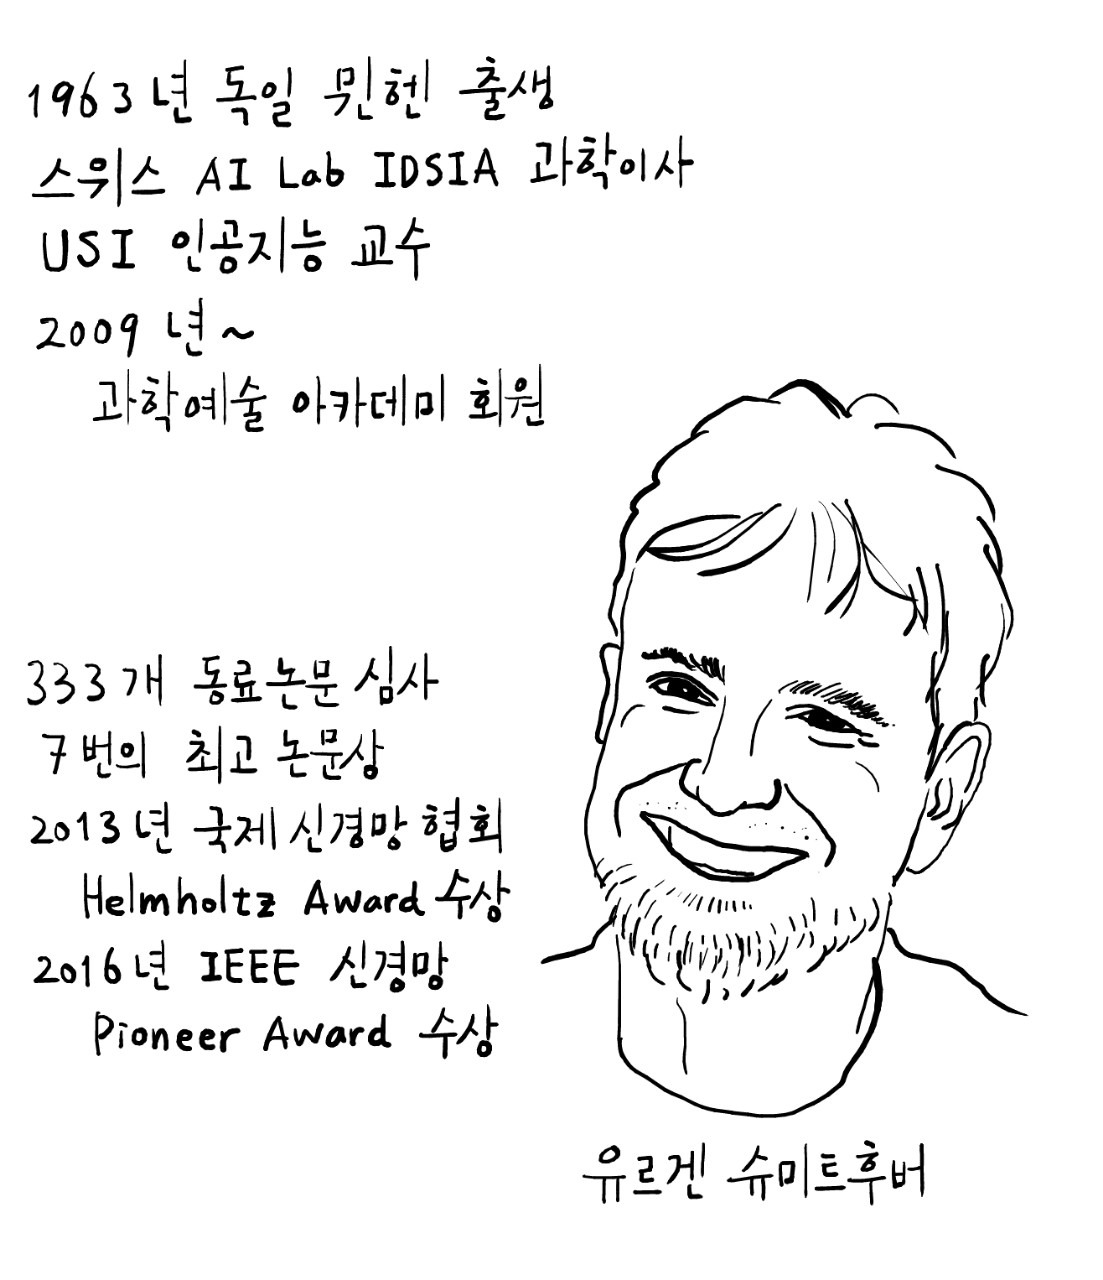 1963년 독일 뮌헨 출생
스위스 AI Lab IDSIA 과학이사
USI 인공지능 교수
2009년~
과학예술 아카데미 회원
333개 동료논문 심사
7번의 최고 논문상
2013년 국제신경망협회
Helmholtz Award 수상
2016년 IEEE 신경망
Pioneer Award 수상
유르겐 슈미트후버